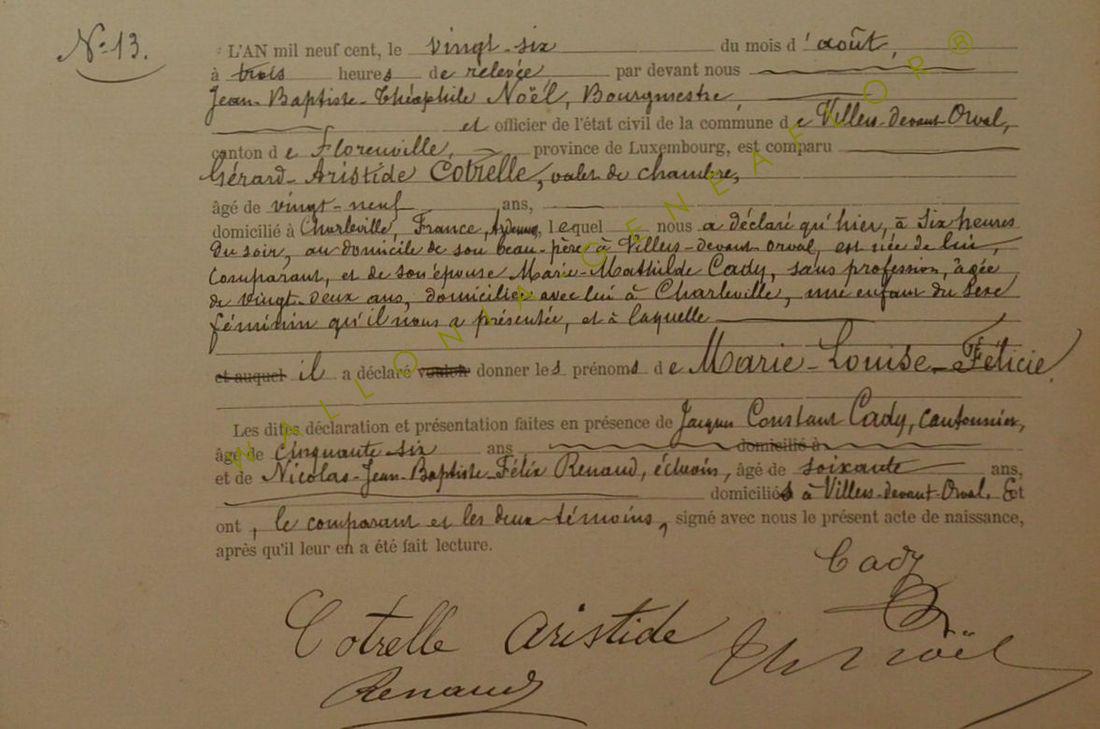 N° 13.
L'AN mil neuf cent, le vingt-six du mois d'août,
à trois heures de relevée, par devant nous
Jean-Baptiste-Théophile Noël, Bourgmestre,
et officier de l'état civil de la commune de Villers-devant-Orval,
canton de Florenville, province de Luxembourg, est comparu
Gérard-Aristide Cotrelle, valet de chambre,
âgé de vingt-neuf ans,
domicilié à Charleville, France, Ardennes, lequel nous a déclaré qu'hier, à six heures
du soir, au domicile de son beau-père à Villers-devant-Orval, est née de lui,
comparant, et de son épouse Marie-Mathilde Cady, sans profession, âgée
de vingt-deux ans, domiciliée avec lui à Charleville, une enfant du sexe
féminin qu'il nous a présentée, et à laquelle
et auquel il a déclaré vouloir donner les prénoms de Marie-Louise-Félicie.
Les dites déclaration et présentation faites en présence de Jacques Constant Cady, cantonnier,
âgé de cinquante-six ans domicilié à
et de Nicolas-Jean-Baptiste-Félix Renaud, échevin, âgé de soixante ans,
domiciliés à Villers-devant-Orval. Et
ont, le comparant et les deux témoins, signé avec nous le présent acte de naissance,
après qu'il leur en a été fait lecture.
Cady
Cotrelle Aristide
Th Noël
Renaud
WALLONIA GENEAFLOR ®